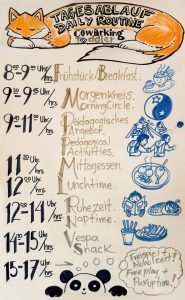 TAGESABLAUF
DAILY ROUTINE
Coworking
Toddler
8:00-9:00 Uhr/hrs. Frühstück/Breakfast.
Uhr/hrs. Morgenkreis.
Morning Circle.
Uhr/hrs. Pädagogisches
Angebot.
Pedagogical
Activities.
11:30 Uhr/hrs. Mittagessen.
12:00 Uhr/hrs. Lunchtime.
12:00-14:00 Uhr/hrs. Ruhezeit.
Naptime.
14:00-15:00 Uhr/hrs. Vesper
Snack.
15-17:00 Uhr/hrs. Freispiel +
Abholzeit!
Free play +
Pickup time!